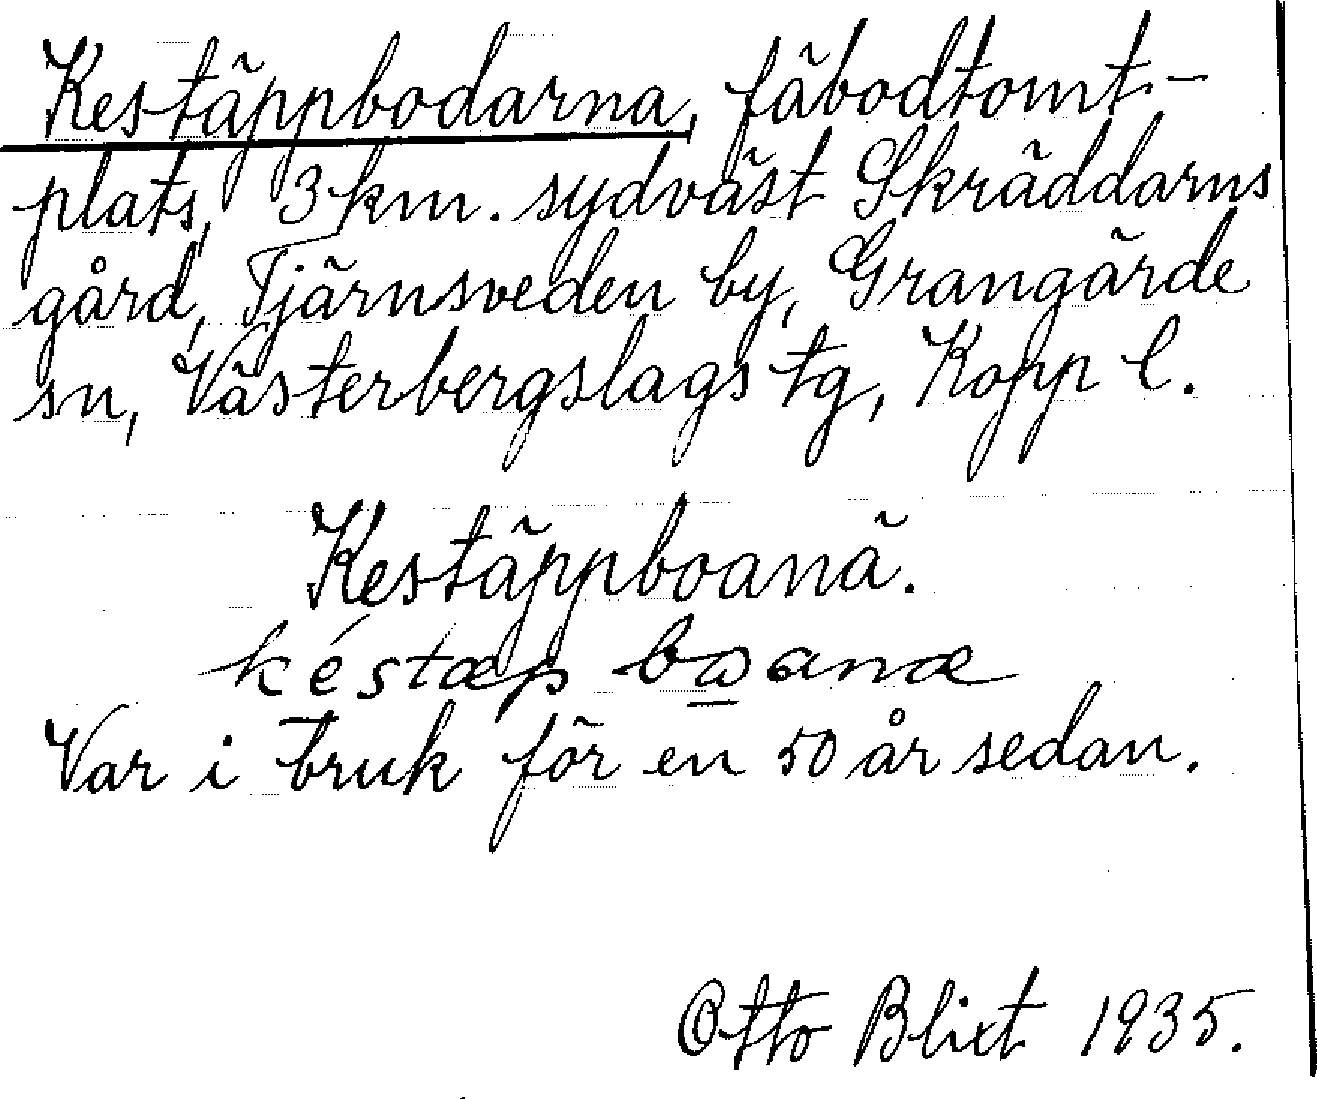 Kestäppbodarna, fäbodtomt-
plats, 3 km. sydväst Skräddarns
gård, Tjärnsveden by, Grangärde
sn, Västerbergslags tg, Kopp l.
Kestäppboanä.
késtæp bωanæ
Var i bruk för en 50 år sedan.
Otto Blixt 1935.